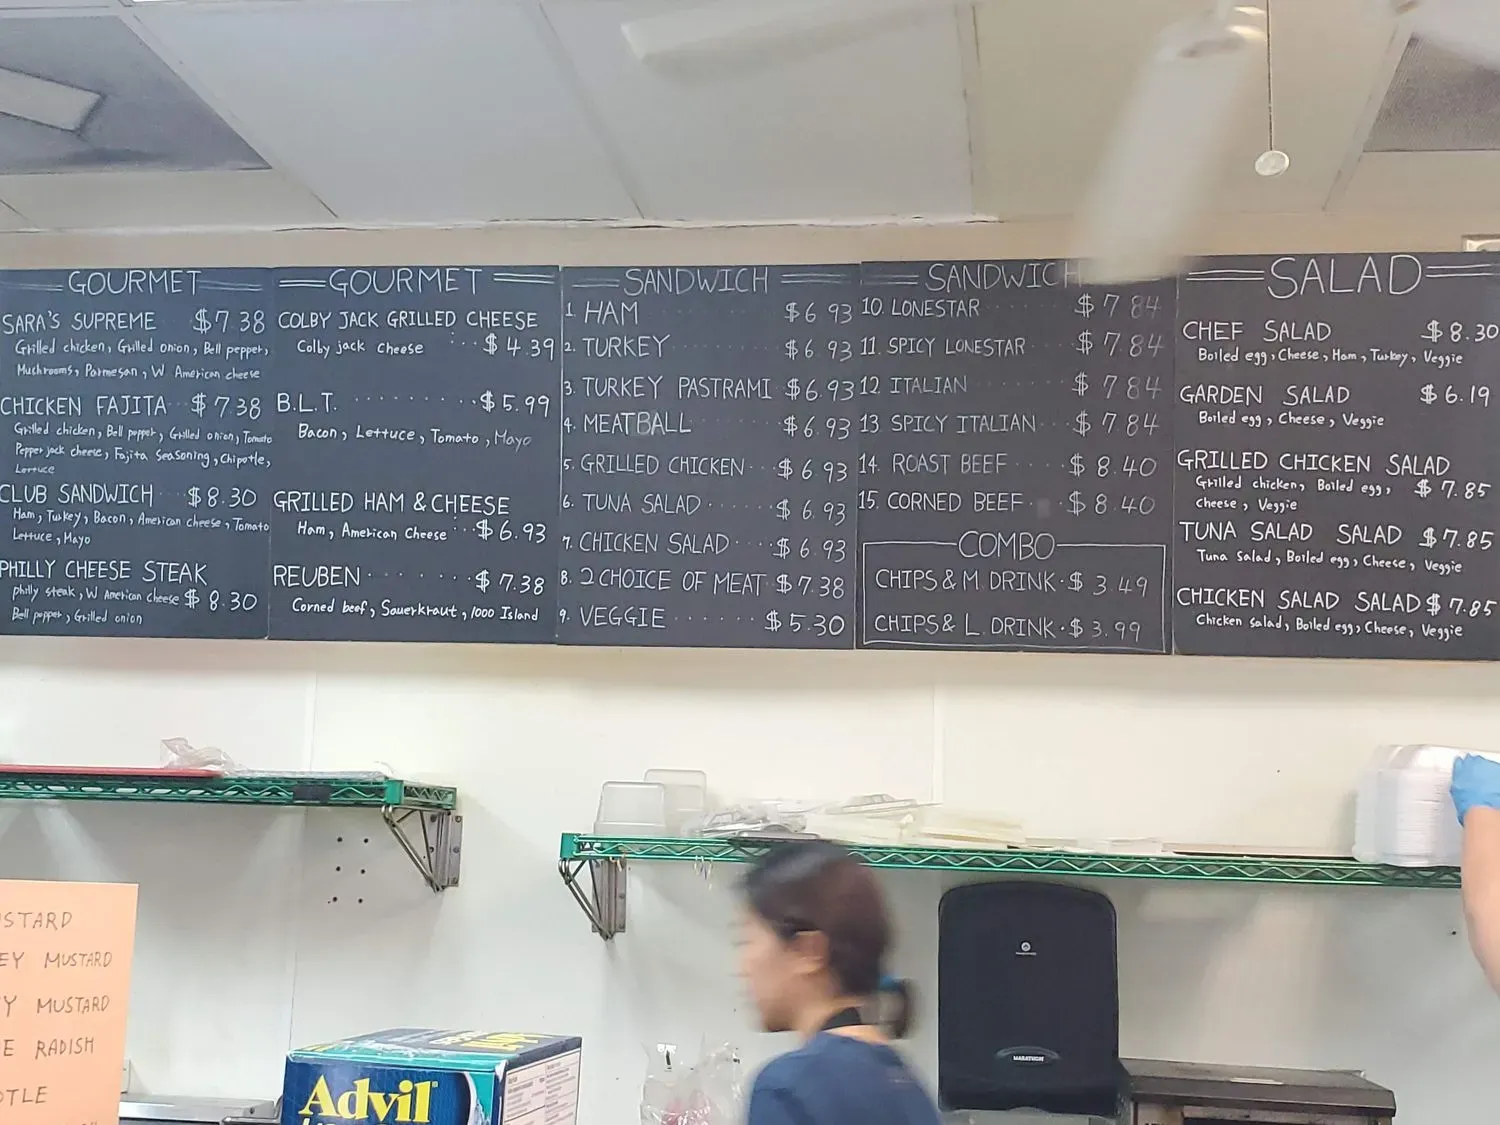 GOURMET
SARA'S SUPREME $7.38
Grilled chicken, Grilled onion, Bell pepper,
Mushrooms, Parmesan, W American cheese
CHICKEN FAJITA $7.38
Grilled chicken, Bell pepper, Grilled onion, Tomato
Pepper jack cheese, Fajita Seasoning, Chipotle,
Lettuce
CLUB SANDWICH $8.30
Ham, Turkey, Bacon, American cheese, Tomato
Lettuce, Mayo
PHILLY CHEESE STEAK
philly steak, W American cheese $8.30
Bell pepper, Grilled onion
GOURMET
COLBY JACK GRILLED CHEESE
Colby jack cheese $4.39
B.L.T. $5.99
Bacon, Lettuce, Tomato, Mayo
GRILLED HAM & CHEESE
Ham, American Cheese $6.93
REUBEN $7.38
Corned beef, Sauerkraut, 1000 Island
SANDWICH
1. HAM $6.93
2. TURKEY $6.93
3. TURKEY PASTRAMI $6.93
4. MEATBALL $6.93
5. GRILLED CHICKEN $6.93
6. TUNA SALAD $6.93
7. CHICKEN SALAD $6.93
8. 2 CHOICE OF MEAT $7.38
9. VEGGIE $5.30
SANDWICH
10. LONESTAR $7.84
11. SPICY LONESTAR $7.84
12. ITALIAN $7.84
13. SPICY ITALIAN $7.84
14. ROAST BEEF $8.40
15. CORNED BEEF $8.40
COMBO
CHIPS & M. DRINK $3.49
CHIPS & L. DRINK $3.99
SALAD
CHEF SALAD $8.30
Boiled egg, Cheese, Ham, Turkey, Veggie
GARDEN SALAD $6.19
Boiled egg, Cheese, Veggie
GRILLED CHICKEN SALAD
Grilled chicken, Boiled egg, $7.85
cheese, Veggie
TUNA SALAD SALAD $7.85
Tuna salad, Boiled egg, Cheese, Veggie
CHICKEN SALAD SALAD $7.85
Chicken salad, Boiled egg, Cheese, Veggie
STARD
EY MUSTARD
Y MUSTARD
E RADISH
OTLE
Advil
MARATHON